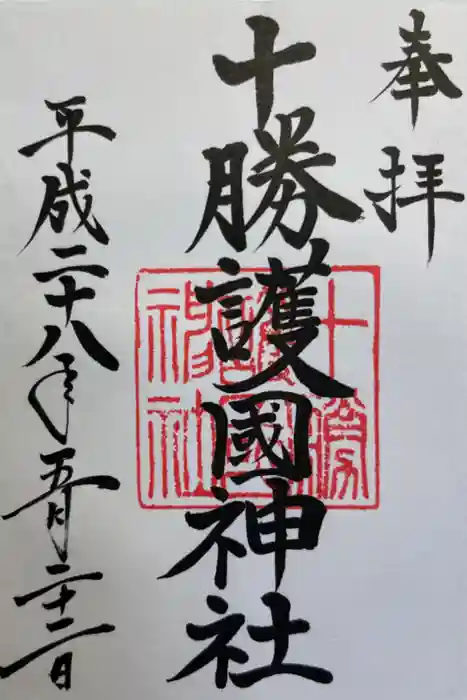 奉拝
十勝護國神社
十勝護國神社
平成二十八年五月二十二日